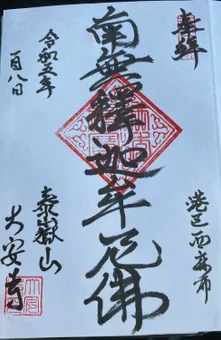 奉拝
港区西麻布
南無釋迦牟尼佛
泰嶽山
大安寺
令和五年
一月八日